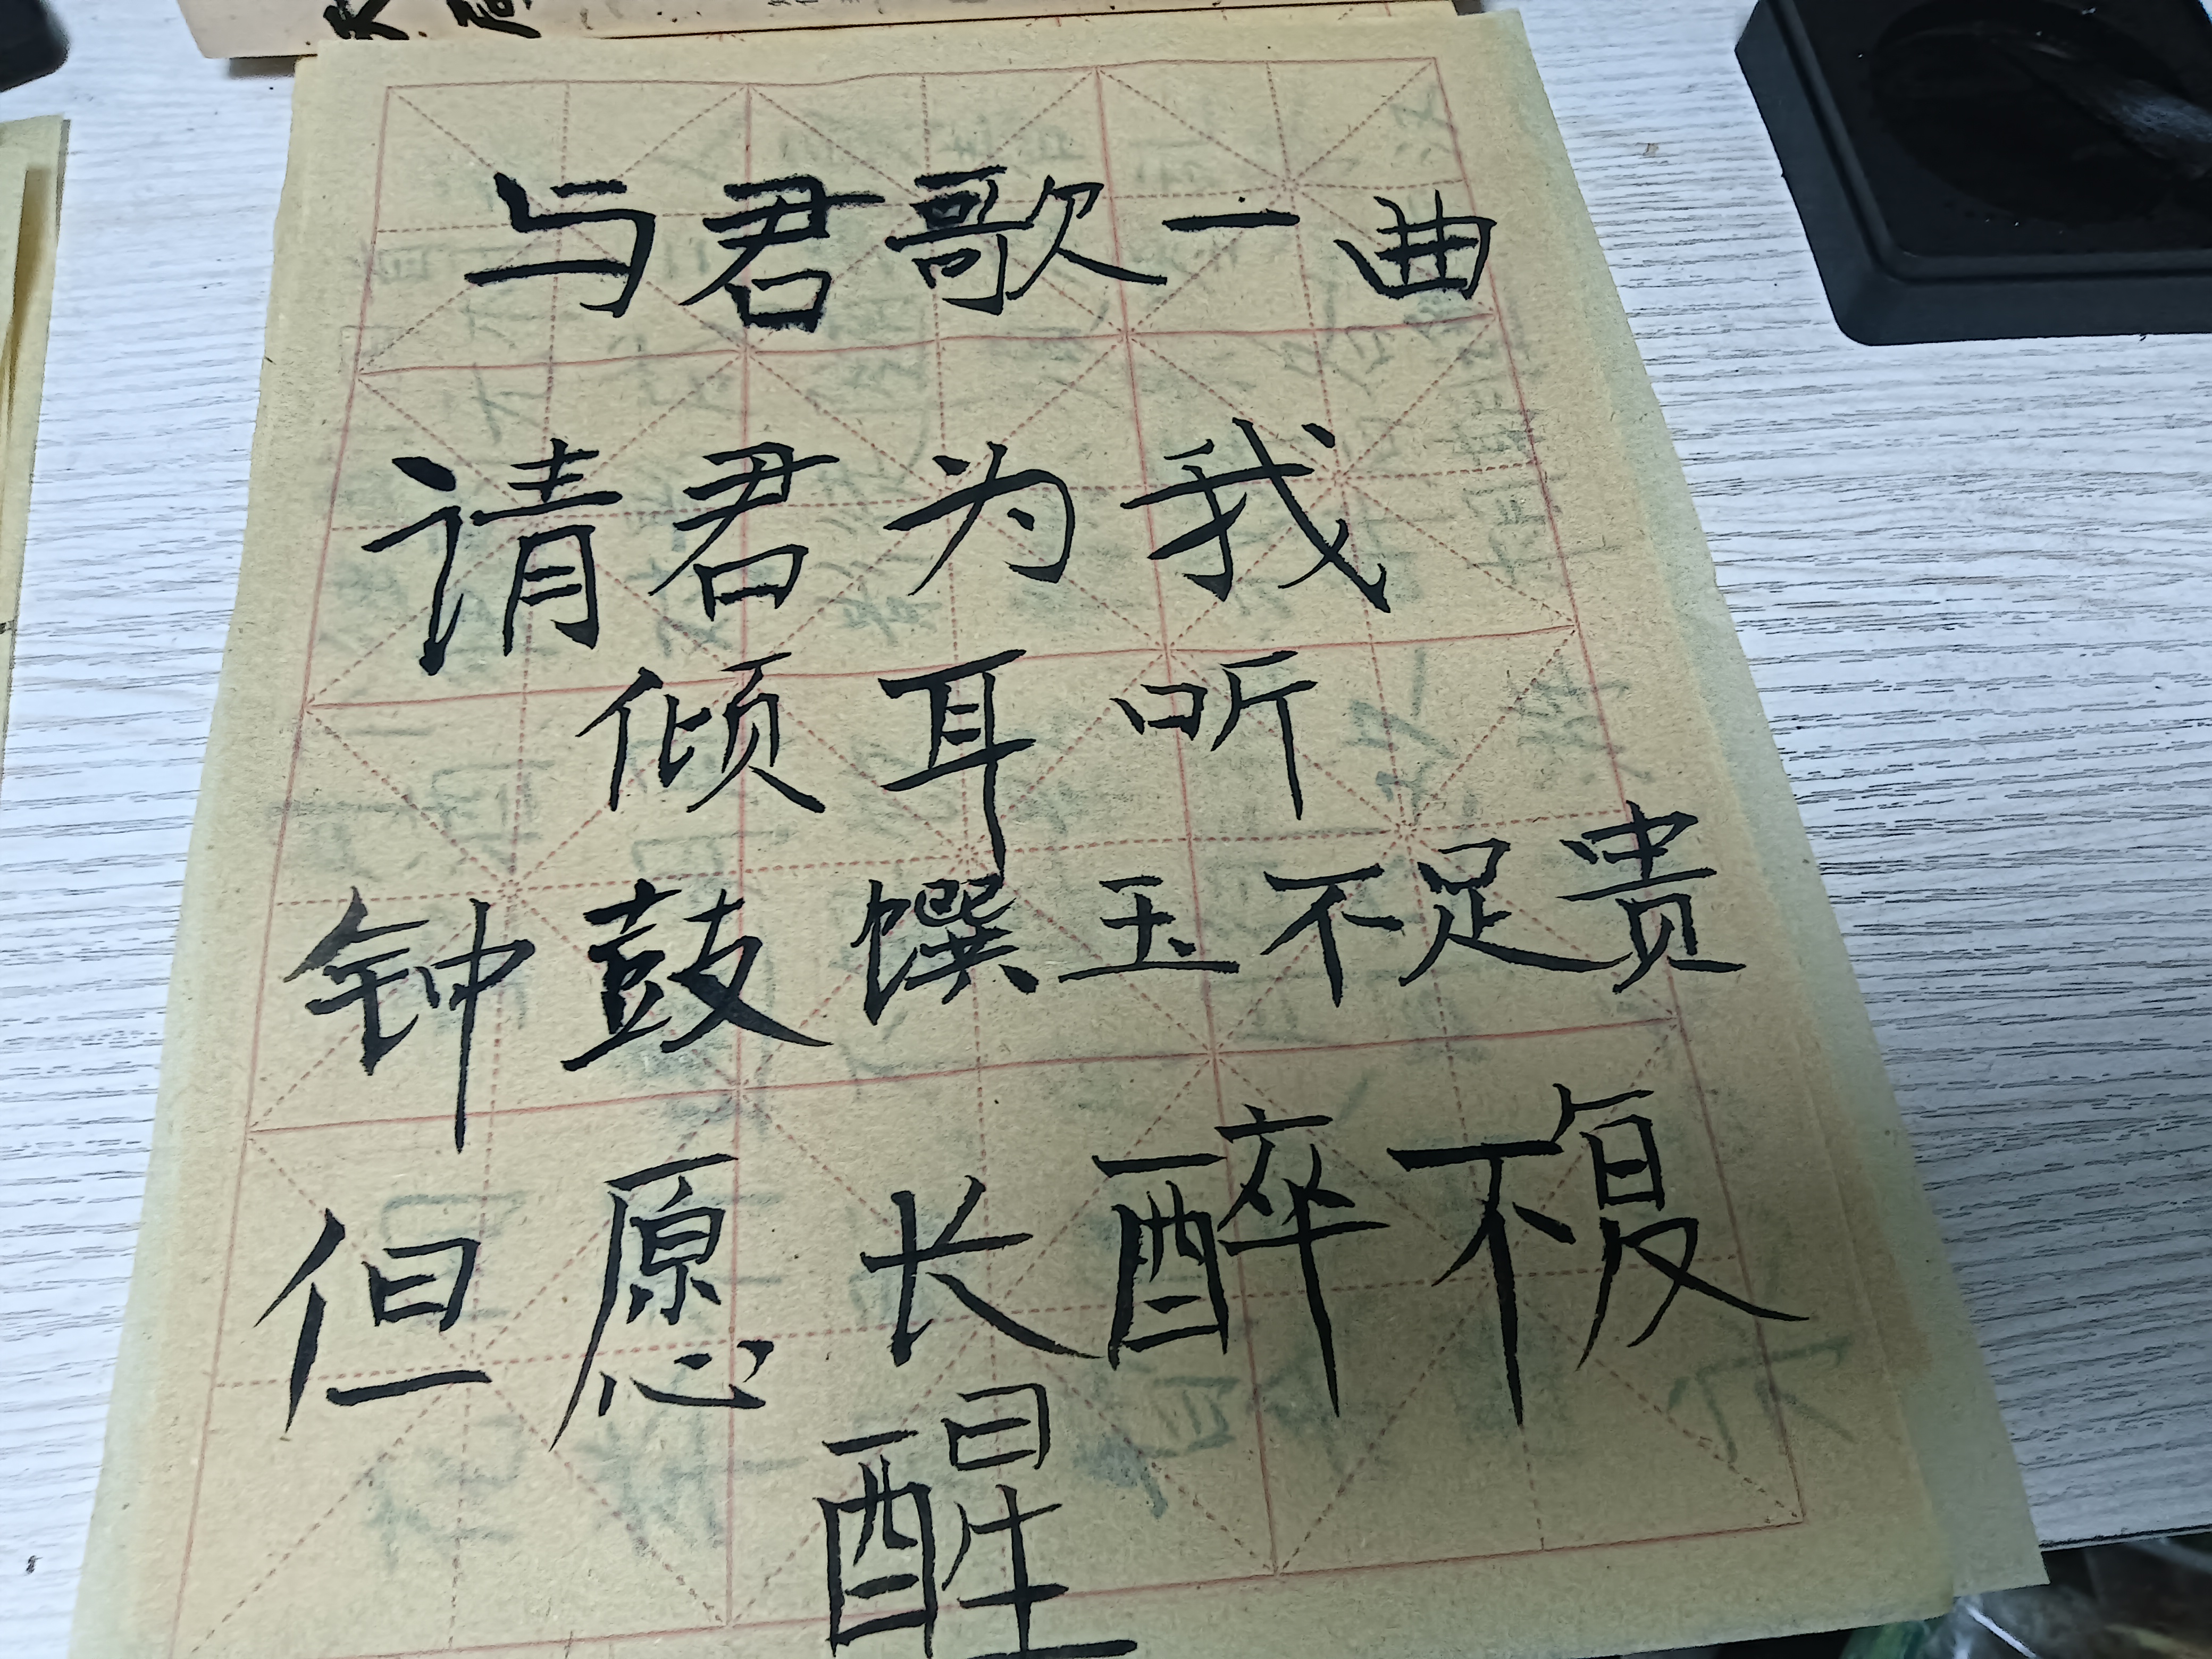 与君歌一曲
请君为我
倾耳听
钟鼓馔玉不足贵
但愿长醉不复
醒